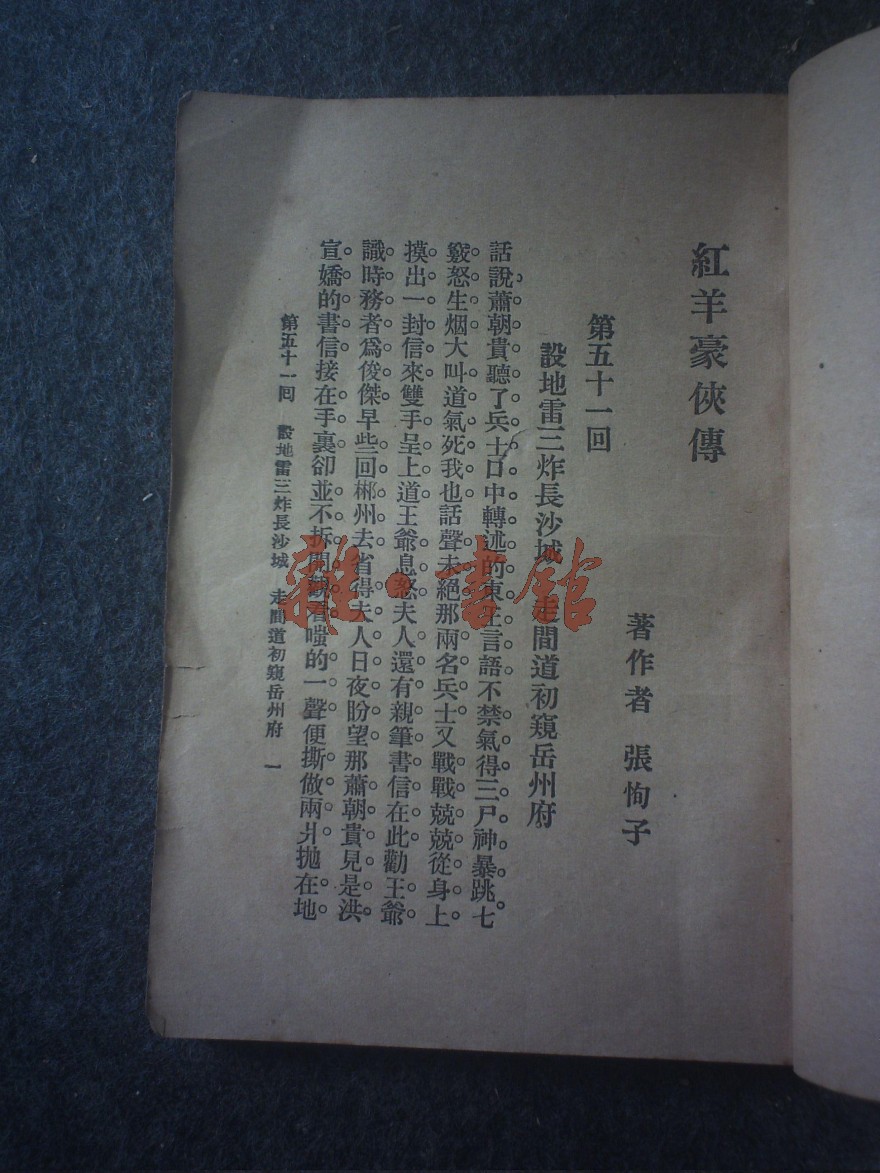 紅羊豪俠傳
著作者 張恂子
第五十一回
設地雷三炸長沙城 走間道初窺岳州府
話說蕭朝貴聽了兵士口中轉述的東王言語不禁氣得三尸神暴跳七
竅怒生烟大叫道氣死我也話聲未絕那兩名兵士又戰戰兢兢從身上
摸出一封信來雙手呈上道王爺息怒夫人還有親筆書信在此勸王爺
識時務者爲俊傑早些回郴州去省得夫人日夜盼望那蕭朝貴見是洪
宣嬌的書信接在手裏卻並不拆開 看嗤的一聲便撕做兩爿拋在地
第五十一回 設地雷三炸長沙城 走間道初窺岳州府 一
雜·書館